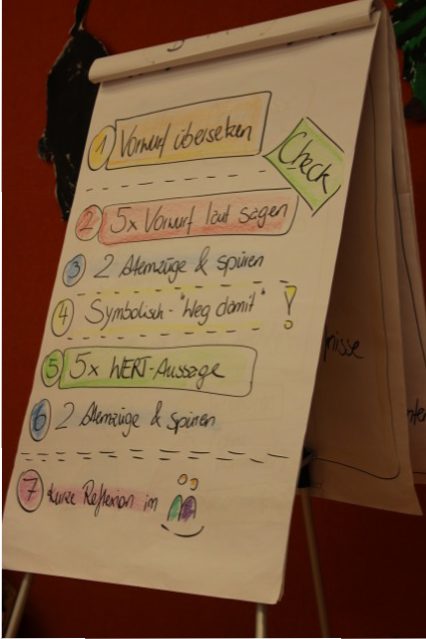 1 Vorwurf übersetzen
Check
2 5x Vorwurf laut sagen
3 2 Atemzüge & spüren
4 Symbolisch - "Weg damit" !
5 5x WERT-Aussage
6 2 Atemzüge & spüren
7 kurze Reflexion im
nisse